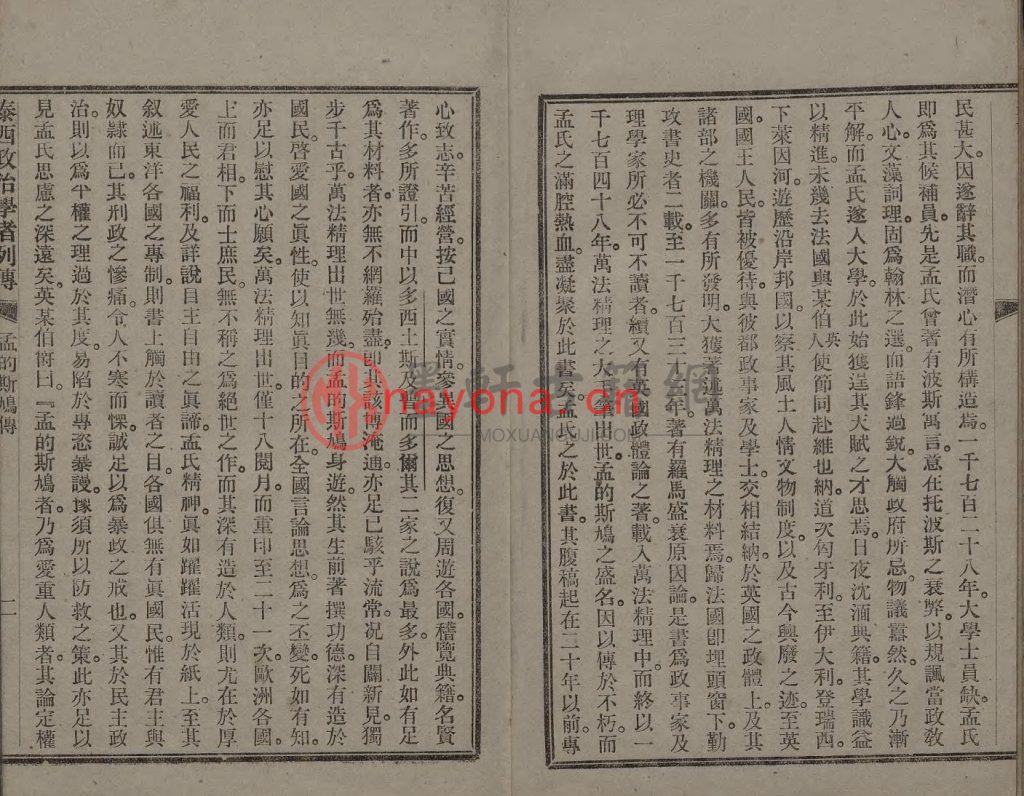 民甚大因遂辭其職而潛心有所構造焉。一千七百二十八年。大學士員缺。孟氏
即爲其候補員。先是孟氏曾著有波斯寓言。意在托波斯之衰弊。以規諷當政敎
人心。文藻詞理。固爲翰林之選。而語鋒過銳。大觸政府所忌。物議囂然。久之乃漸
平解。而孟氏遂入大學。於此始獲逞其天賦之才思焉。日夜沈湎與籍。其學識益
以精進。未幾去法國與某伯英人使節同赴維也納。道次匈牙利至伊大利。登瑞西
下萊因河。遊歷沿岸邦國。以察其風土人情文物制度。以及古今興廢之迹。至英
國。國王人民。皆被優待。與彼都政事家及學士。交相結納。於英國之政體上。及其
諸部之機關。多有所發明。大獲著述萬法精理之材料焉。歸法國卽埋頭窗下。勤
攻書史者二載。至一千七百三十年。著有羅馬盛衰原因論。是書爲政事家及
理學家所必不可不讀者。續又有英國政體論之著。載入萬法精理中。而終以一
千七百四十八年。萬法精理之大著出世。孟的斯鳩之盛名。因以傳於不朽。而
孟氏之滿腔熱血。盡凝聚於此書矣。孟氏之於此書。其腹稿起在二十年以前。專
心致志。辛苦經營。按己國之實情。參異國之思想。復又周遊各國。稽覽典籍。名賢
著作。多所證引。而中以多西土斯及普而多爾其二家之說爲最多。外此如有足
爲其材料者。亦無不網羅殆盡。卽其該博淹通。亦足已駭乎流常。况自闢新見。獨
步千古乎。萬法精理出世無幾。而孟的斯鳩身遊。然其生前著撰功德。深有造於
國民。啓愛國之眞性。使以知眞目的之所在。全國言論思想。爲之丕變。死如有知。
亦足以慰其心願矣。萬法精理出世。僅十八閱月。而重印至二十一次。歐洲各國。
上而君相。下而士庶民。無不稱之爲絕世之作。而其深有造於人類。則尤在於厚
愛人民之福利。及詳說自主自由之眞諦。孟氏精神。眞如躍躍活現於紙上。至其
叙述東洋各國之專制。則書上觸於讀者之目。各國俱無有眞國民。惟有君主與
奴隷而已。其刑政之慘痛。令人不寒而慄。誠足以爲暴政之戒也。又其於民主政
治。則以爲平權之理過於其度。易陷於專恣暴謾。豫須所以防救之策。此亦足以
見孟氏思慮之深遠矣。英某伯爵曰。『孟的斯鳩者。乃爲愛重人類者。其論定權
泰西政治學者列傳 孟的斯鳩傳 二
墨軒古籍網
nayona.cn
MOXUANGUJI.COM